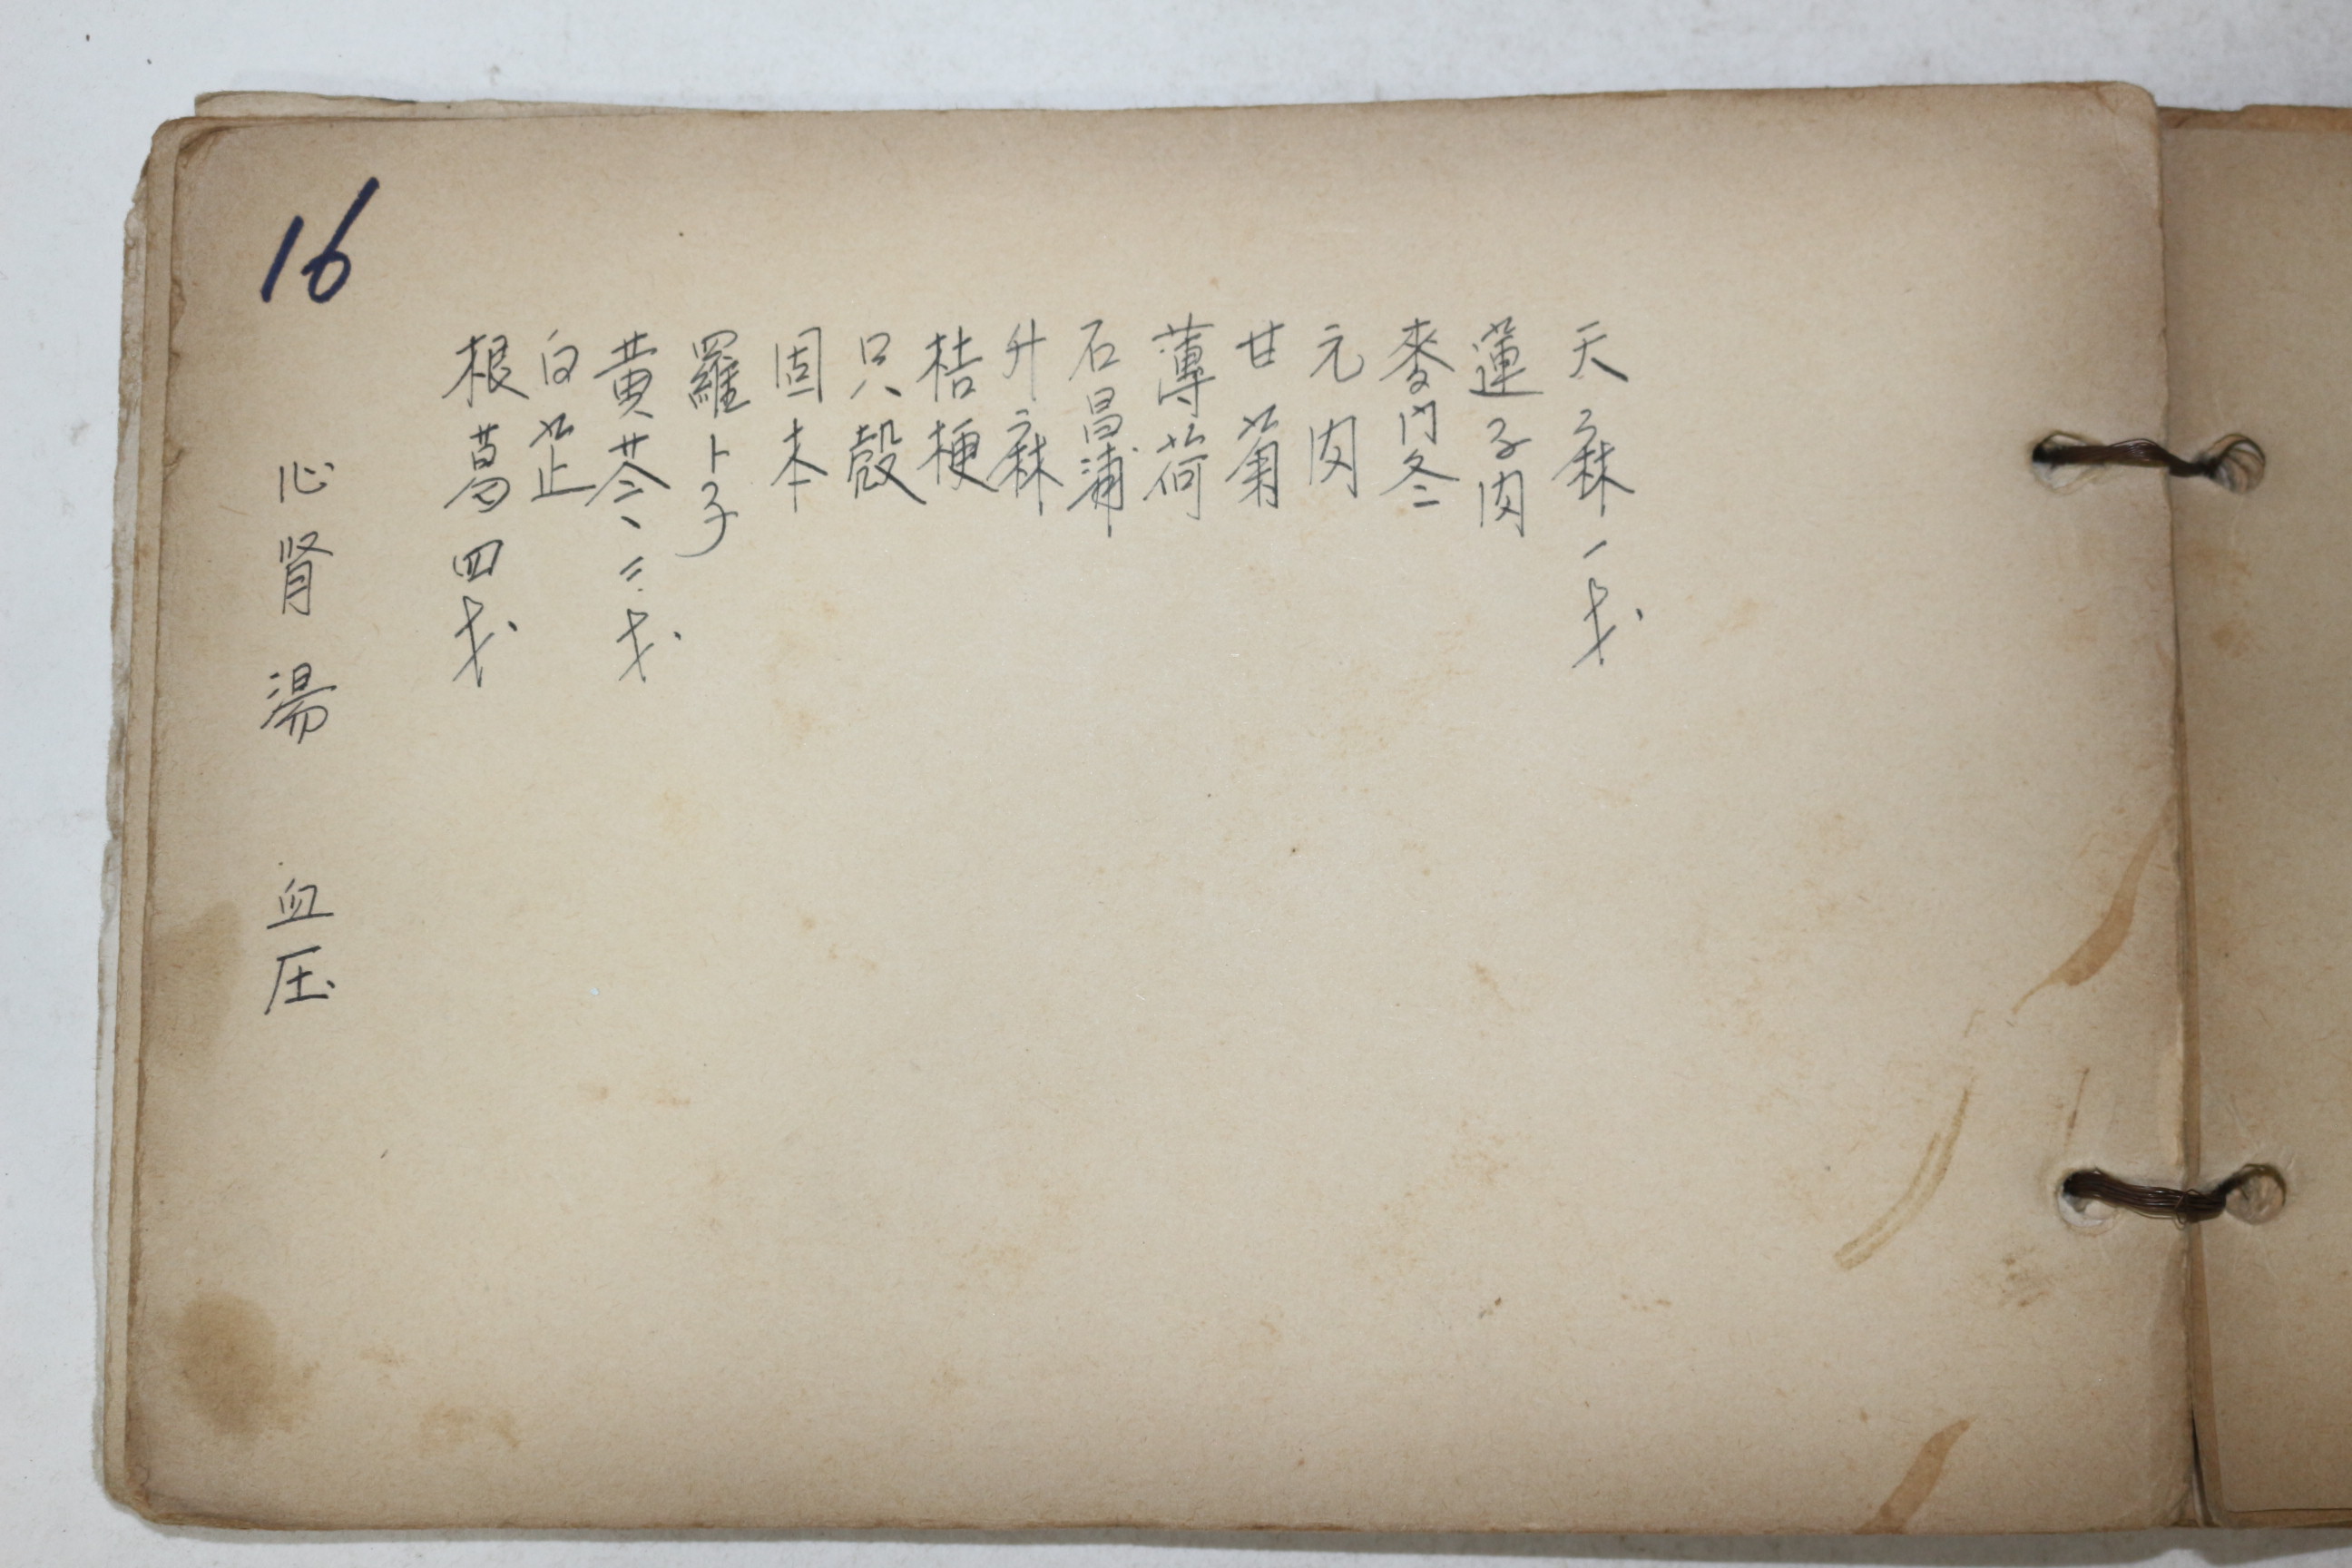 16
心肾湯 血压
根葛四戋
白芷
黄芩二戋
羅卜子
固本
只殼
桔梗
升麻
石昌蒲
薄荷
甘菊
元肉
麥門冬
蓮子肉
天麻一戋